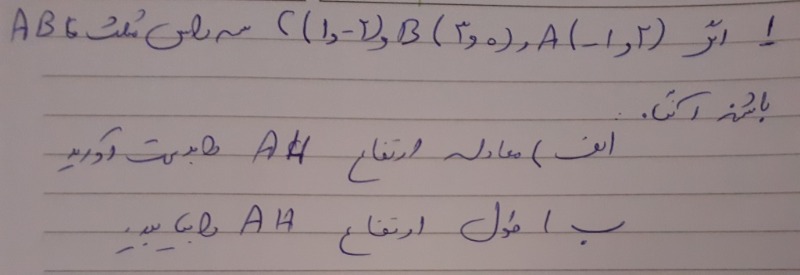 1 اگر A(-1,2) و B(3,0) و C(1,-2) سه رأس مثلث ABC
باشند آنگاه:
الف) معادله ارتفاع AH را بدست آورید
ب) طول ارتفاع AH را بیابید.